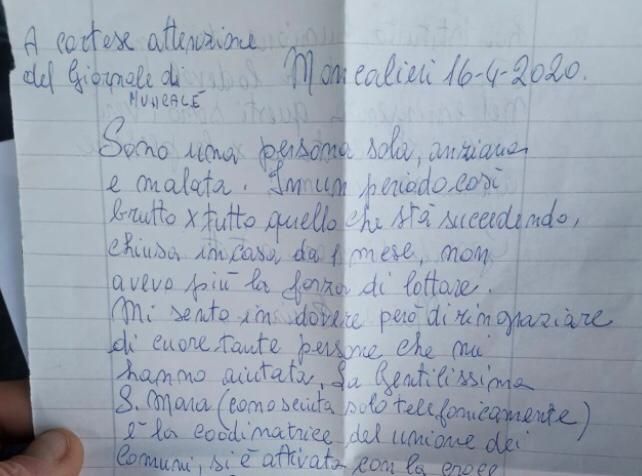 A cortese attenzione
del Giornale di Moncalieri 16-4-2020.
Sono una persona sola, anziana
e malata. In un periodo così
brutto x tutto quello che stà succedendo,
chiusa in casa da 1 mese, non
avevo più la forza di lottare.
Mi sento in dovere però di ringraziare
di cuore tante persone che mi
hanno aiutata. La Gentilissima
S. Mara (conosciuta solo telefonicamente)
è la coodinatrice del unione dei
comuni, si è attivata con la croce